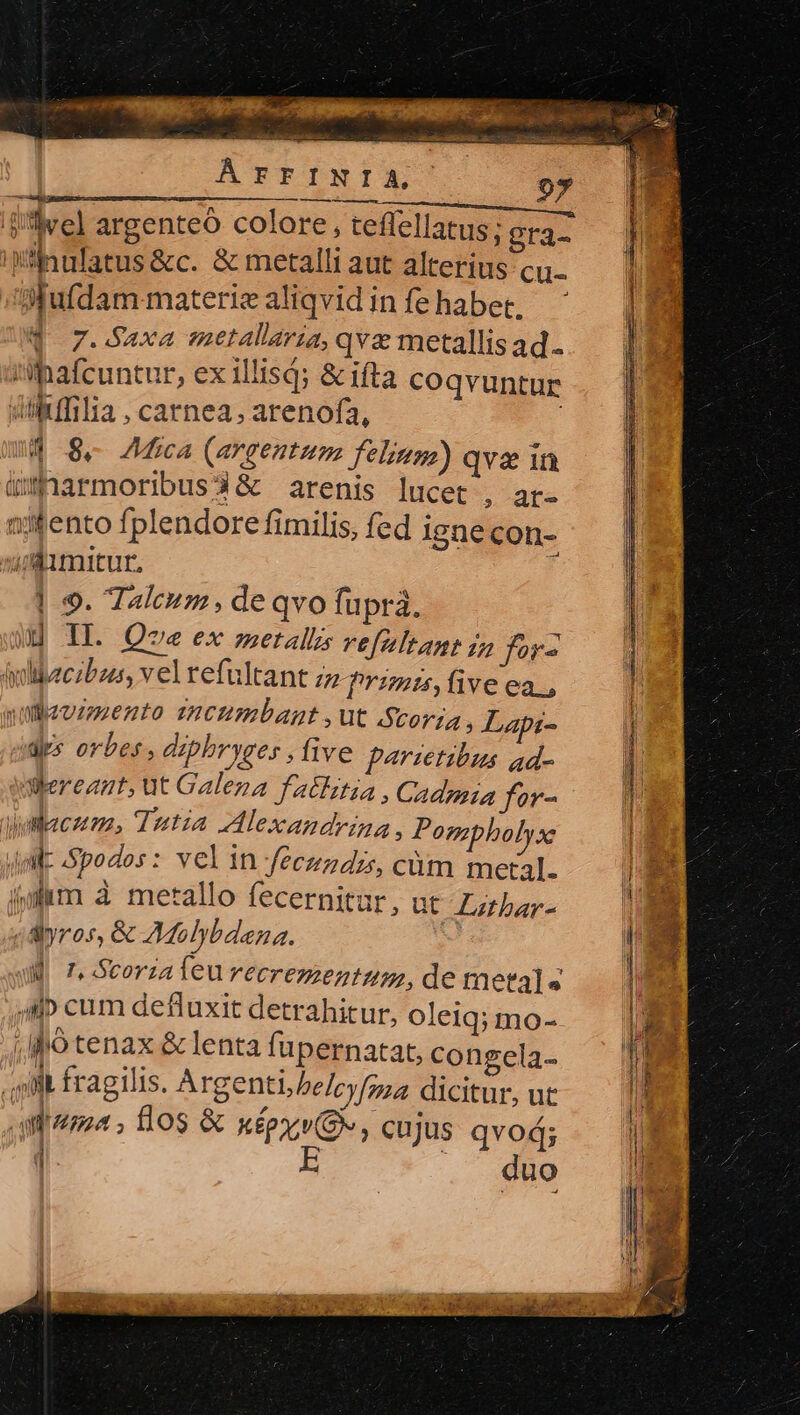 AFFINIA. 97
vel argenteô colore, teſſellatus; gra-
nulatus &c. & metalli aut alterius cu-
juſdam materiæ aliqvid in ſe habet.
7. Saxa metallaria, qvæ metallis ad-
naſcuntur, ex illisq́; & iſta coqvuntur
fiſſilia, carnea, arenoſa,
8. Mica (argentum felium) qvæ in
marmoribus & arenis lucet, ar-
gento ſplendore ſimilis, ſed igne con-
ſumitur.
9. Talcum, de qvo ſuprà.
II. Qvæ ex metallis reſultant in for-
nacibus, vel reſultant in primis, ſive ea,
pavimento incumbant, ut Scoria, Lapi-
orbes, diphryges, ſive parietibus ad-
hæreant, ut Galena factitia, Cadmia for-
nacum, Tutia Alexandrina, Pompholyx
Spodos: vel in ſecundis, cùm metal-
à metallo ſecernitur, ut Lithar-
gyros, & Molybdæna.
1, Scoria ſeu recrementum, de metal-
cum defluxit detrahitur, oleiq; mo-
dô tenax & lenta ſupernatat, congela-
fragilis. Argenti, helcyſma dicitur, ut
flos & κέρχν@, cujus qvoq́;
E duo